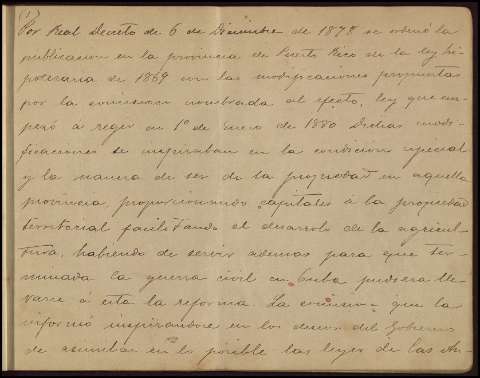 (1)
Por Real Decreto de 6 de Diciembre de 1878 se ordenó la
publicacion en la provincia de Puerto Rico de la ley hi-
potecaria de 1869 con las modificaciones propuestas
por la comision nombrada al efecto, ley que em-
pezó a regir en 1º de Enero de 1880 Dichas modi-
ficaciones se inspiraban en la condicion especial
y la manera de ser de la propiedad en aquella
provincia, proporcionando capitales á la propiedad
territorial facilitando el desarrollo de la agricul-
tura, habiendo de servir ademas para que ter-
minada la guerra civil en Cuba pudiera lle-
varse á esta la reforma. La comision que la
informó inspirandose en los deseos del Gobierno
de asimilar en lo posible las leyes de las An-